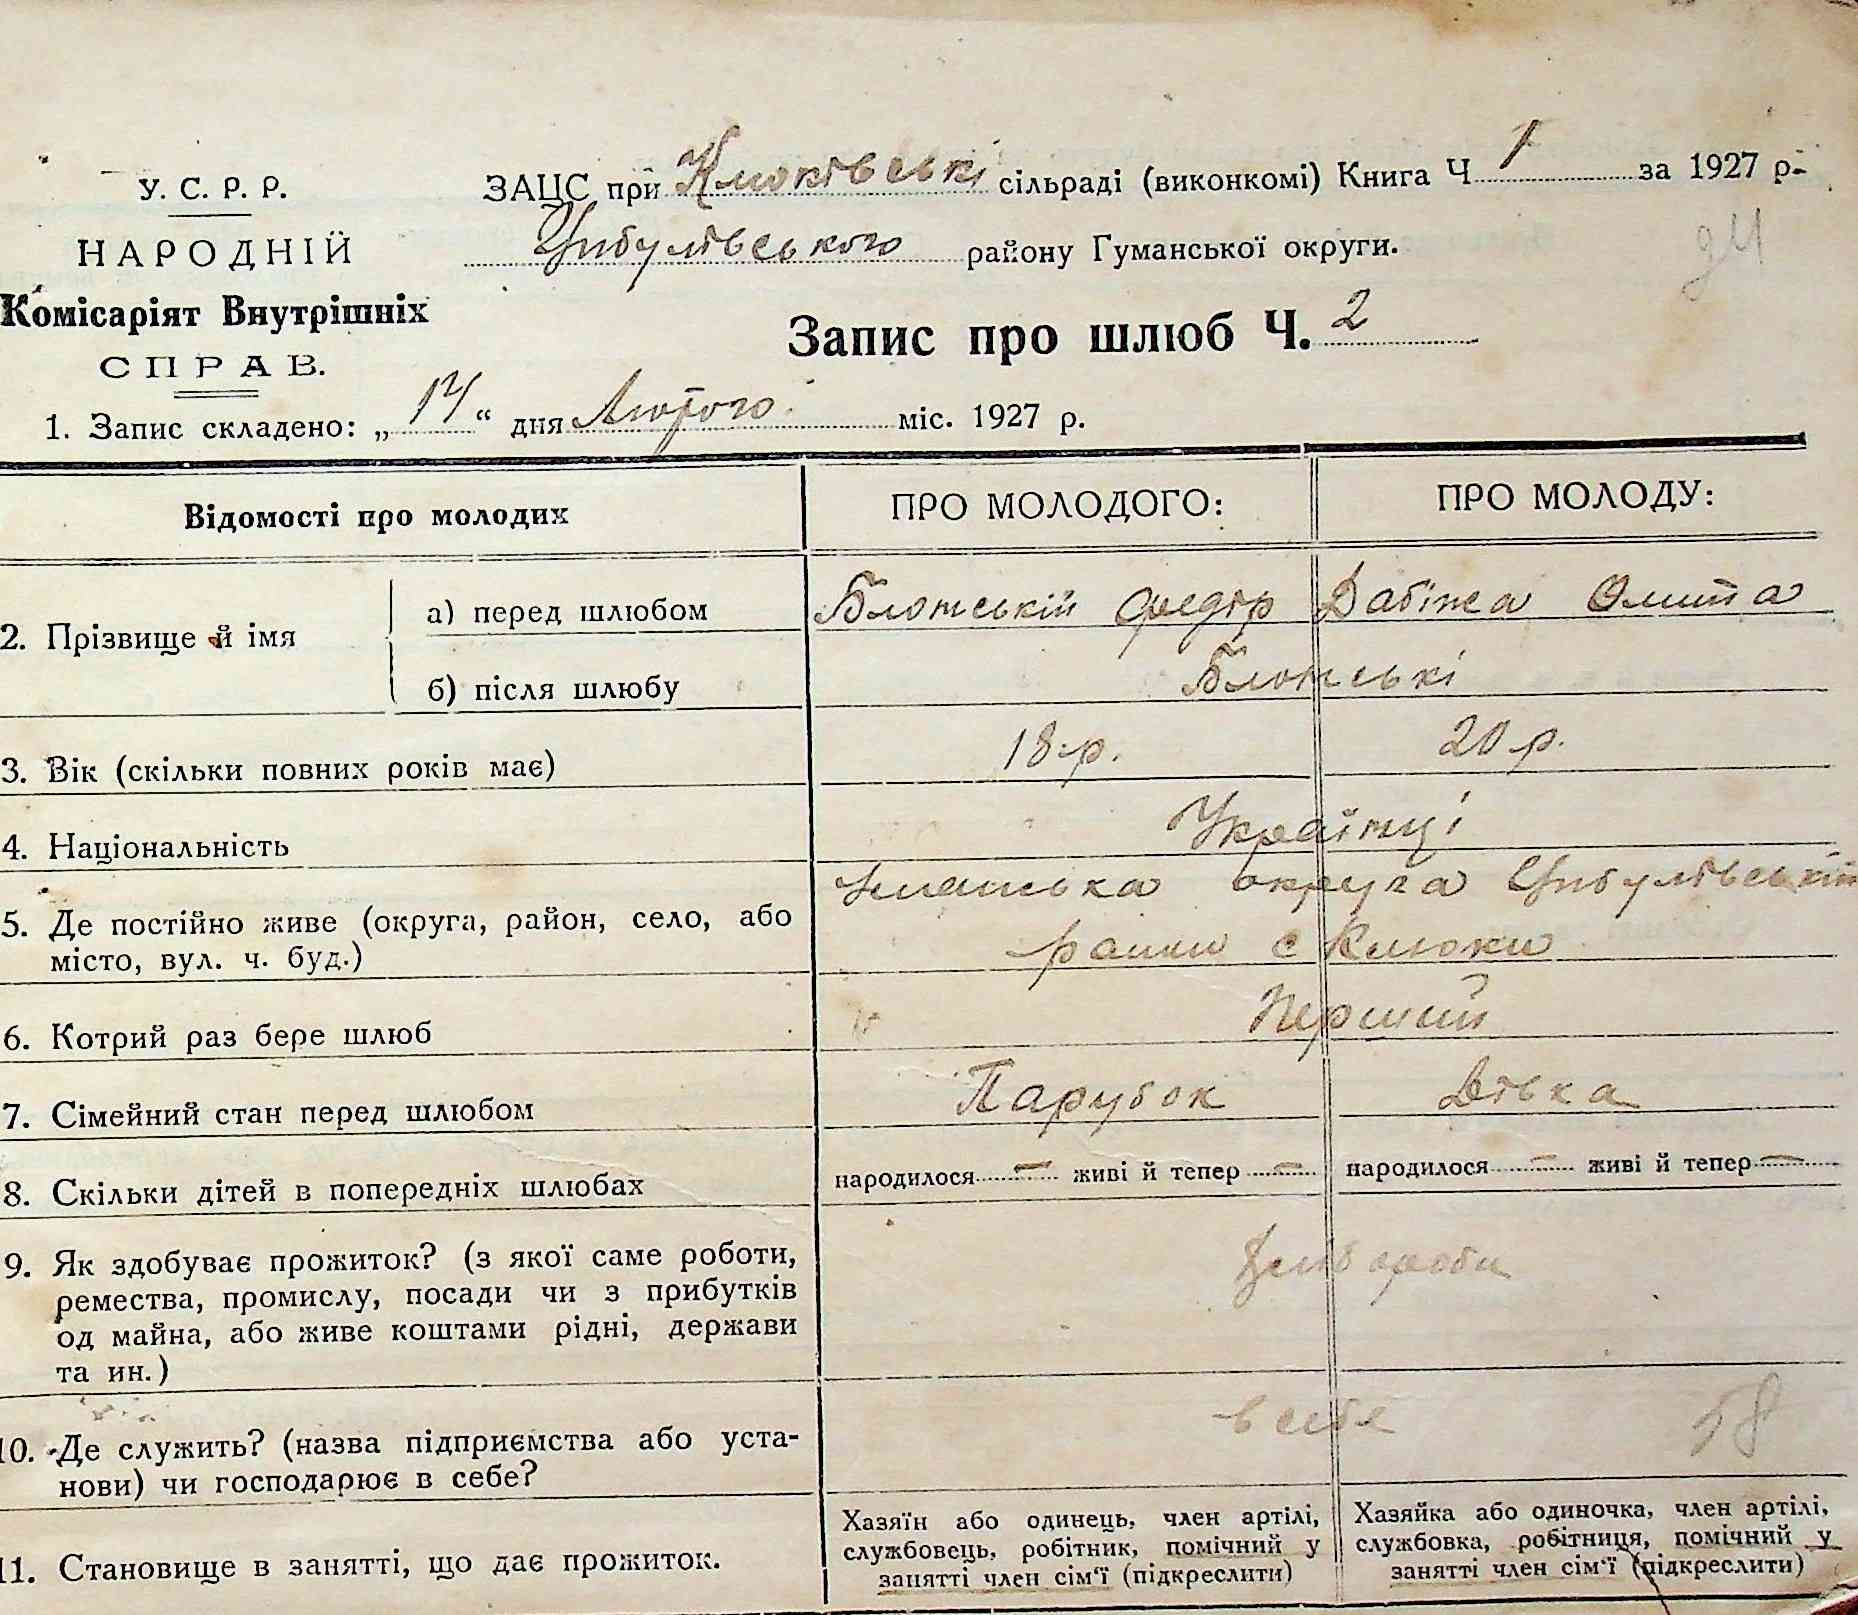 У. С. Р. Р.
НАРОДНІЙ
Комісаріят Внутрішніх
СПРАВ.
ЗАЦС при Клюківські сільраді (виконкомі) Книга Ч 1 за 1927 р.
Цибулівського району Гуманської округи.
24
Запис про шлюб Ч. 2
1. Запис складено: „14“ дня Лютого міс. 1927 р.
Відомості про молодих
ПРО МОЛОДОГО:
ПРО МОЛОДУ:
2. Прізвище й імя
а) перед шлюбом
Блонський Федір
Дабіжа Олита
б) після шлюбу
Блонські
3. Вік (скільки повних років має)
18 р.
20 р.
4. Національність
Українці
5. Де постійно живе (округа, район, село, або
місто, вул. ч. буд.)
Уманська округа Цибулівський
район с Клюки
6. Котрий раз бере шлюб
Перший
7. Сімейний стан перед шлюбом
Парубок
Дівка
8. Скільки дітей в попередніх шлюбах
народилося — живі й тепер —
народилося — живі й тепер —
9. Як здобуває прожиток? (з якої саме роботи,
ремества, промислу, посади чи з прибутків
од майна, або живе коштами рідні, держави
та ин.)
Хлібороби
10. Де служить? (назва підприємства або уста-
нови) чи господарює в себе?
в себе
58
11. Становище в занятті, що дає прожиток.
Хазяїн або одинець, член артілі,
службовець, робітник, помічний у
занятті член сім'ї (підкреслити)
Хазяйка або одиночка, член артілі,
службовка, робітниця, помічний у
занятті член сім'ї (підкреслити)